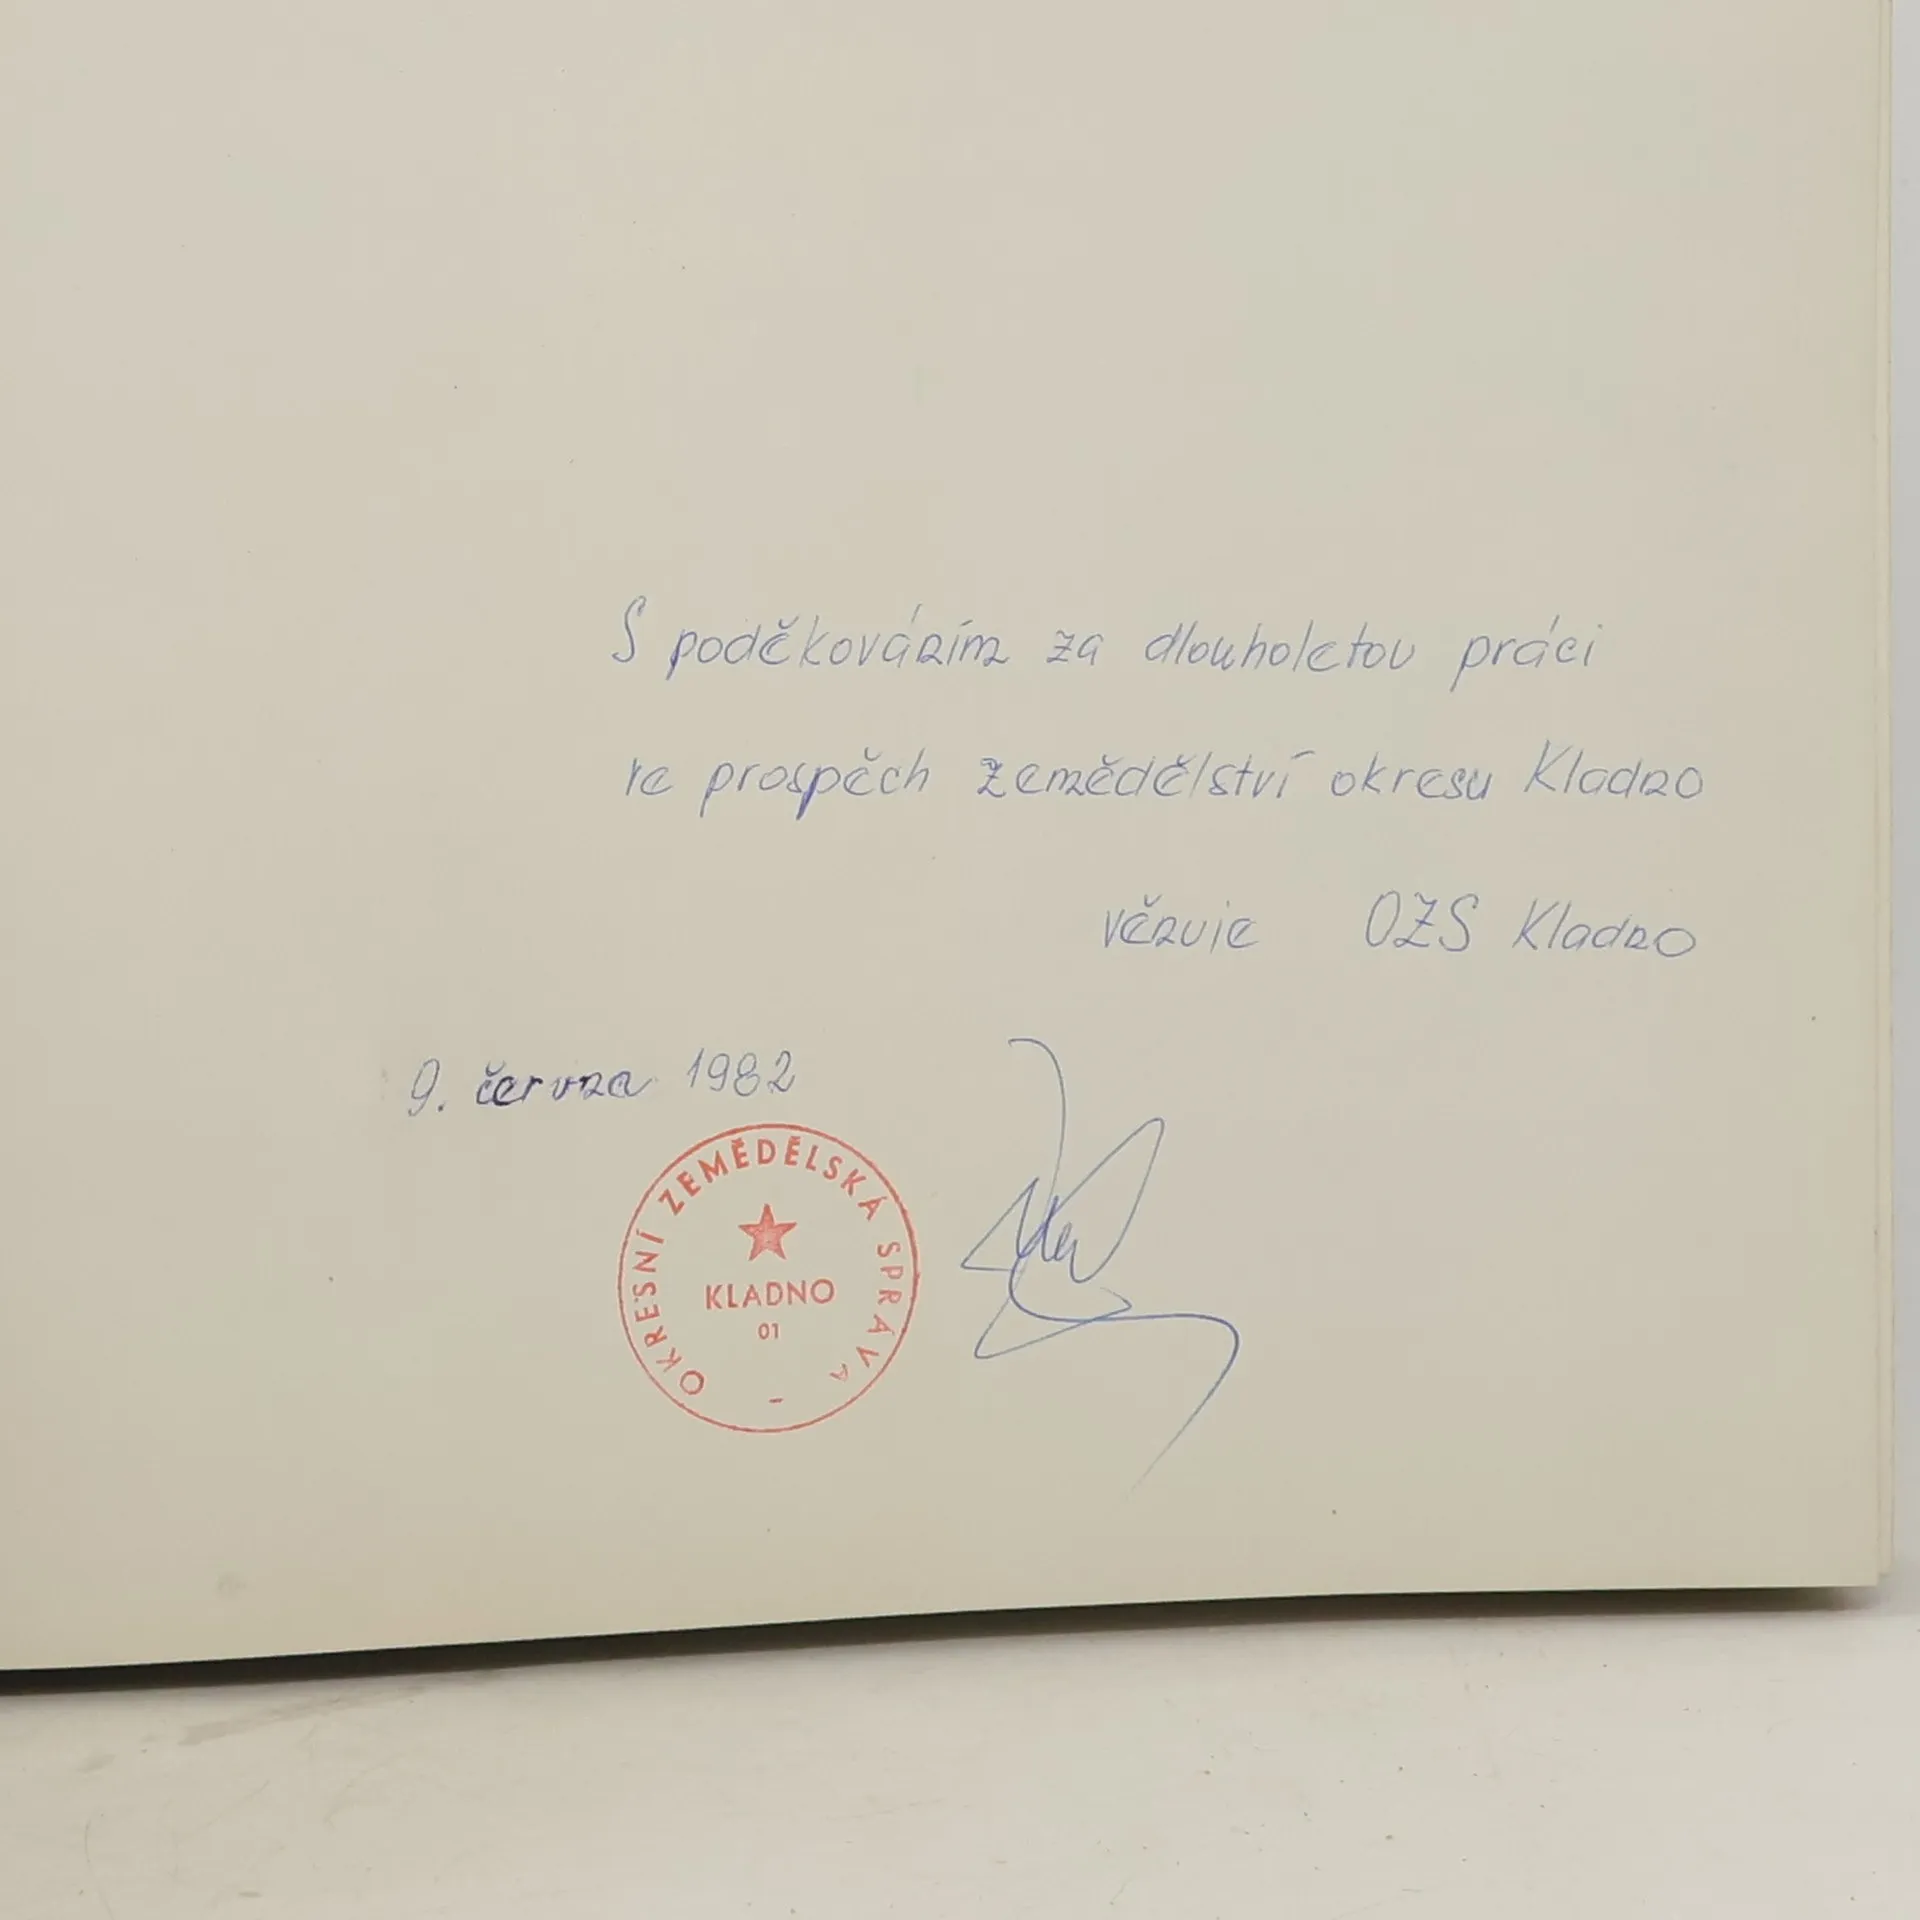 S poděkováním za dlouholetou práci
ve prospěch zemědělství okresu Kladno
věnuje OZS Kladno
9. června 1982
OKRESNÍ ZEMĚDĚLSKÁ SPRÁVA -
KLADNO
01